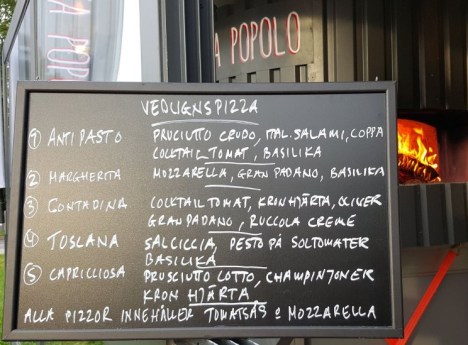 A POPOLO
A POPO
VEDUGNSPIZZA
① ANTIPASTO PRUCIUTTO CRUDO, ITAL. SALAMI, COPPA
COCKTAIL TOMAT, BASILIKA
② MARGHERITA MOZZARELLA, GRAN PADANO, BASILIKA
③ CONTADINA COCKTAIL TOMAT, KRONHJÄRTA, OLIVER
GRAN PADANO, RUCCOLA CREME
④ TOSCANA SALCICCIA, PESTO PÅ SOLTOMATER
BASILIKA
⑤ CAPRICCIOSA PRUSCIUTTO COTTO, CHAMPINJONER
KRON HJÄRTA
ALLA PIZZOR INNEHÅLLER TOMATSÅS & MOZZARELLA